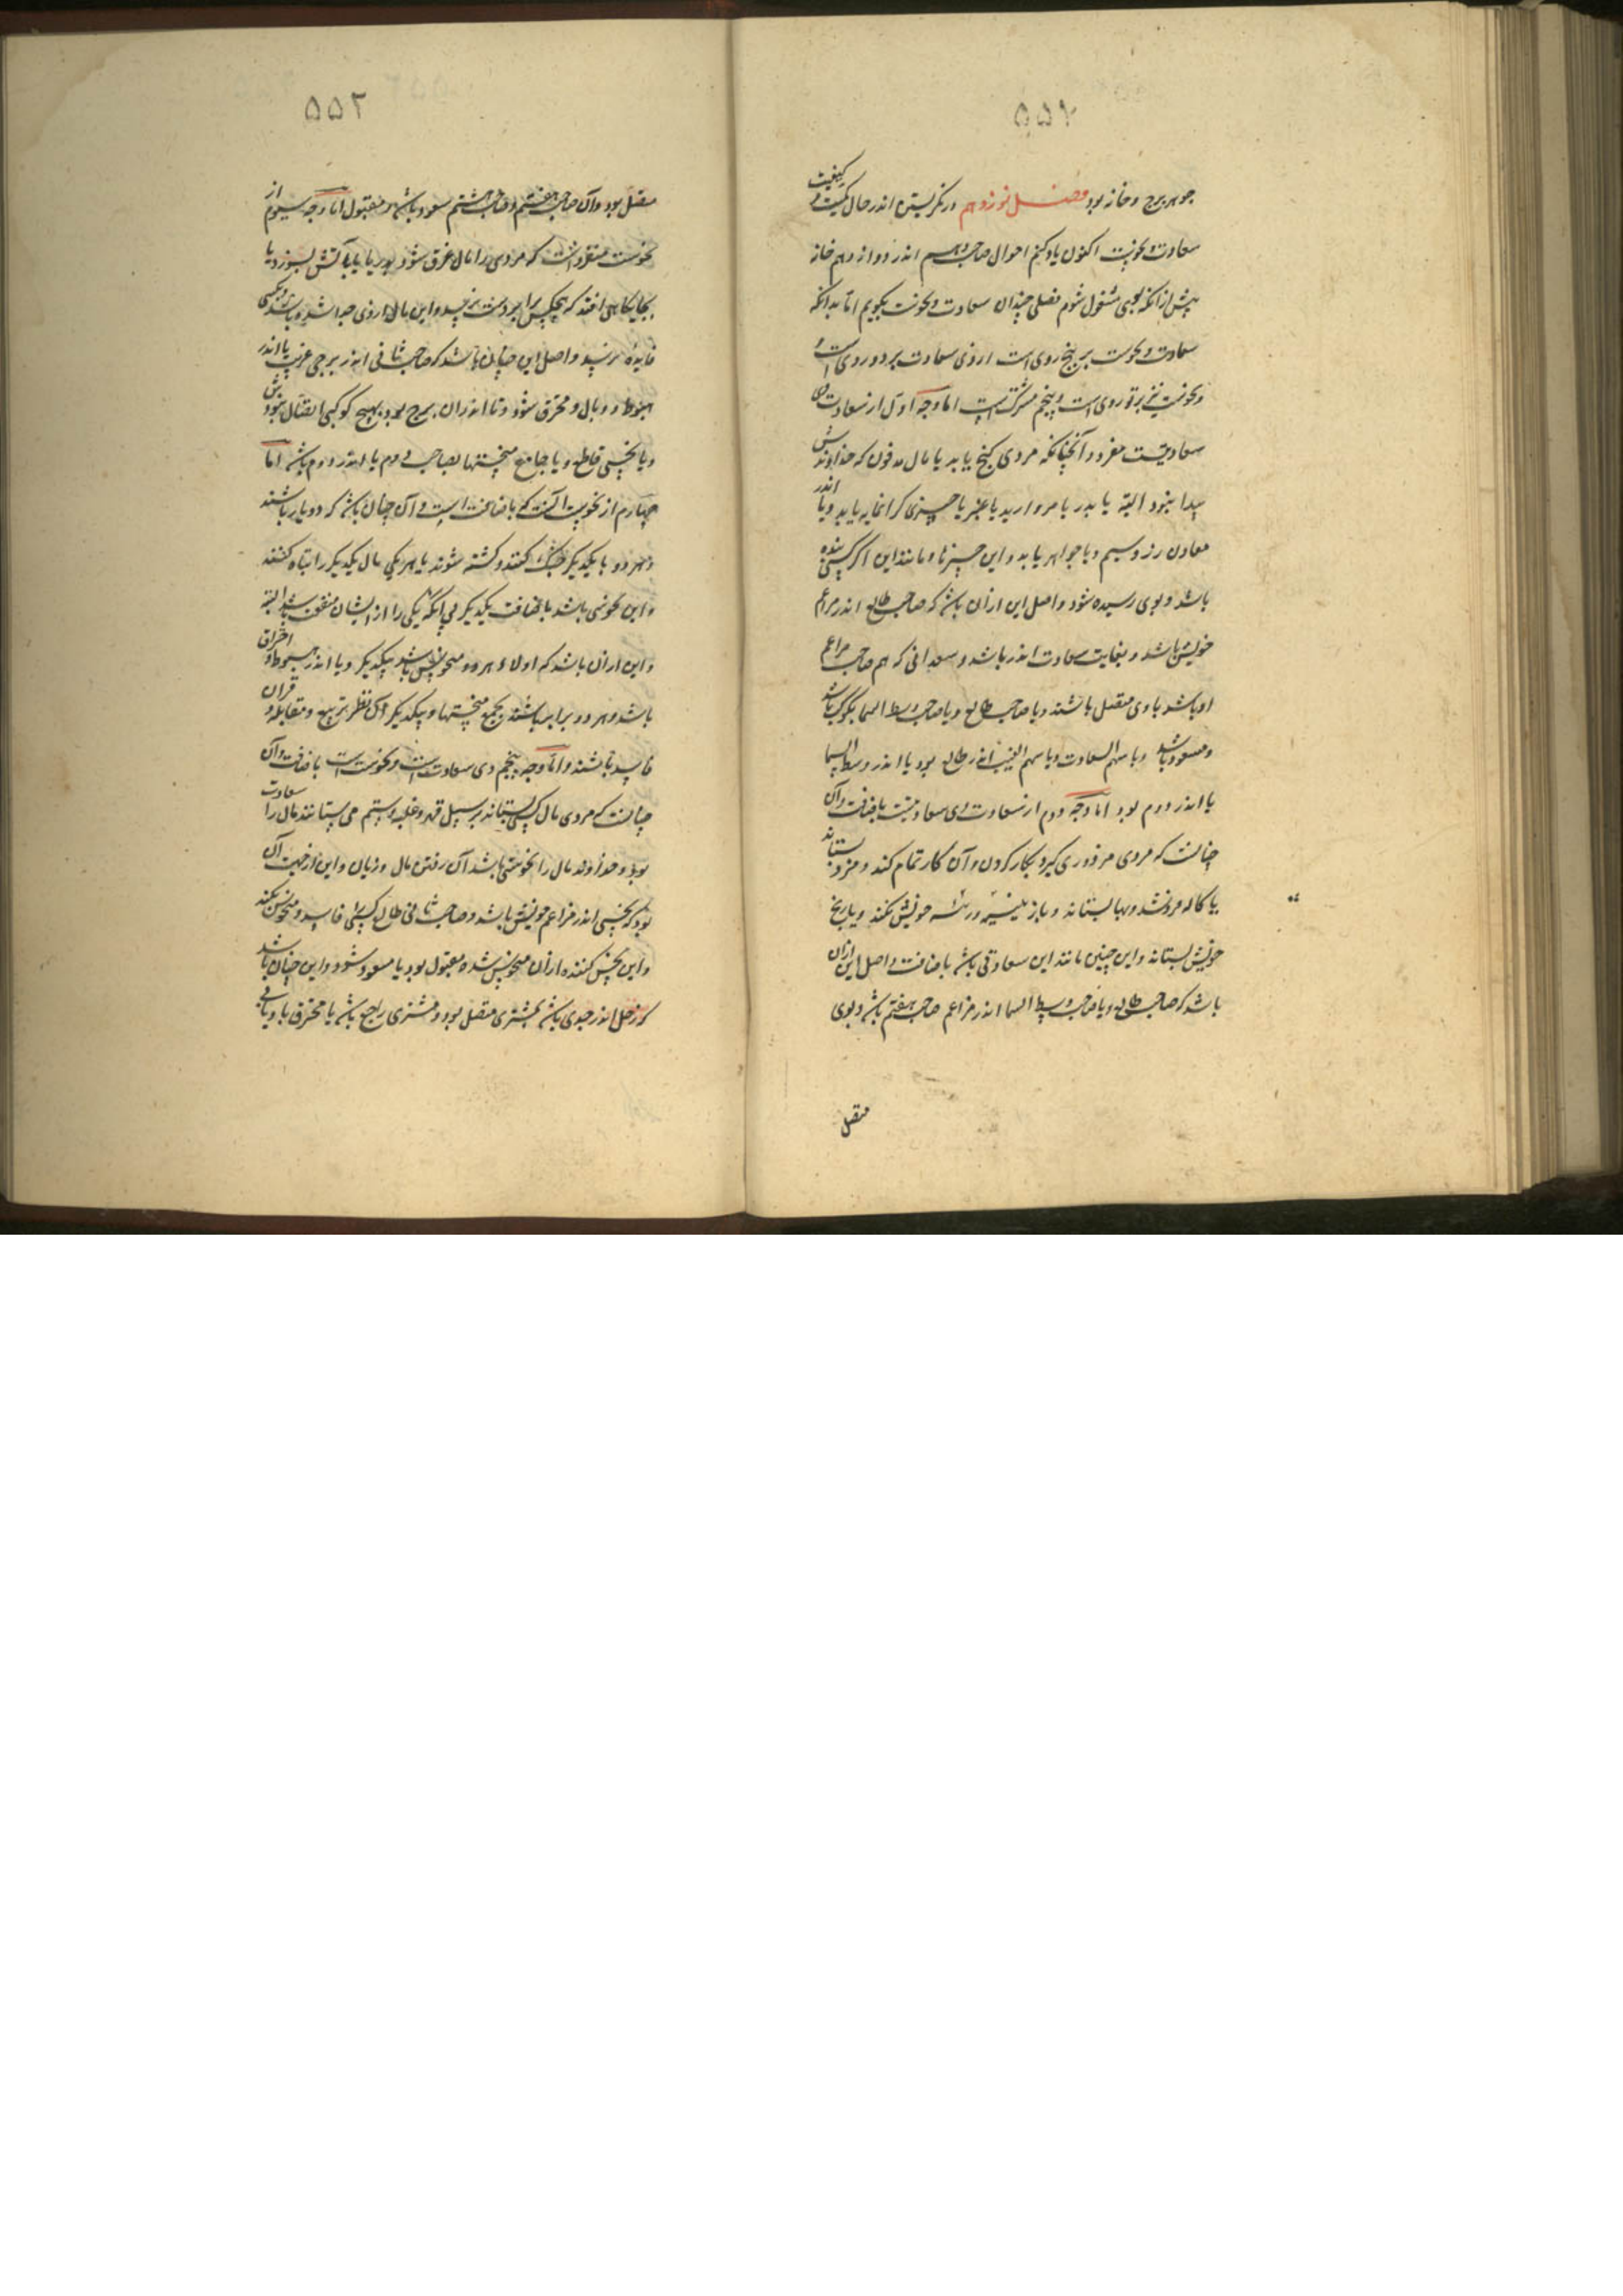 ۵۵۱
جوهر برج و خانه بود فصل نوزدهم در نگریستن اندر حال کمیت و کیفیت
سعادت و نحوست اکنون یاد کنیم احوال صاحب دوم اندر دوازدهم خانه
پیش از آنکه بوی مشغول شوم فصلی چندان سعادت و نحوست بگویم اما بدانکه
سعادت و نحوست بر پنج روی است از وی سعادت بر دو روی است و
و نحوست نیز بر دو روی است و پنجم مشترک است اما وجه اول از سعادت
سعادتیست مفرد و آنچنانکه مردی گنج یابد یا مال مدفون که خداوندش
پیدا نبود البته یا بدر یا مروارید یا عنبر یا چیزی گرانمایه یابد و یا اندر
معادن زر و سیم و یا جواهر یابد و این چیزها و مانند این اگر کسی
باشد و بوی رسیده شود و اصل این از آن باشد که صاحب طالع اندر مزاعم
خویش باشد و بغایت سعادت اندر باشد و سعدانی که هم صاحب مزاعم
او باشد با وی متصل باشند و یا صاحب طالع و یا صاحب وسط السما بکوکب باشد
و مسعود باشد و با سهم السعادت و یا سهم الغیب اندر طالع بود یا اندر وسط السما
یا اندر دوم بود اما وجه دوم از سعادت وی سعادتیست باضافت و آن
چنانست که مردی مزدوری گیرد بکار کردن و آن کار تمام کند و مزد بستاند
یا کاله فروشد و بها بستاند و باز خویش نکند و یا رنج
خویش بستاند و این چنین مانند این سعادتی باشد باضافت و اصل این از آن
باشد که صاحب طالع و یا صاحب وسط السما اندر مزاعم صاحب هفتم باشد و بوی
متصل
۵۵۲
متصل بود و آن صاحب هفتم و صاحب هشتم مسعود باشد و مقبول اما وجه سیوم از
نحوست مفرد آنست که مردی را مال غرق شود بدریا یا بآتش بسوزد یا
بجایگاهی افتد که هیچکس را بر دست نرسد و این مال از وی جدا شده باشد و بکسی
فایده نرسد و اصل این چنان باشد که صاحب ثانی اندر برجی غریب یا اندر
هبوط و وبال و محترق شود و تا اندران برج بود بهیچ کوکبی اتصال نبودش
و یا نحسی قاطع و یا جامع نحسیتها بصاحب دوم یا اندر دوم باشد اما
چهارم از نحوست آنست که باضافت است و آن چنان باشد که دو یار باشند
و هر دو با یکدیگر جنگ کنند و کشته شوند یا هر یکی مال یکدیگر را تباه کنند
و این نحوسی باشد باضافت یکدیگر بی آنکه یکی را از ایشان منفعت باشد البته
و این از آن باشد که اولا و هر دو منحوس باشند بیکدیگر و یا اندر هبوط و احتراق
باشد و هر دو برابر باشند بجمع نحسیتها و بیکدیگر آن نظر تربیع و مقابله و قران
فاسد باشند و اما وجه پنجم وی سعادتست و نحوست است باضافت و آن
چنانست که مردی مال کسی بستاند بر سبیل قهر و غلبه و ستم می ستانند مال را سعادت
بود و خداوند مال را نحوستی باشد آن رفتن مال و زیان و این از جهت آن
بود که نحسی اندر مزاعم خویش باشد و صاحب ثانی طالع کسی را فاسد و منحوس بکند
و این نحس کننده از آن منحوس شده مقبول بود یا مسعود شود و این چنان باشد
که زحل اندر جدی باشد بمشتری متصل بود و مشتری راجع باشد یا محترق با وبالی